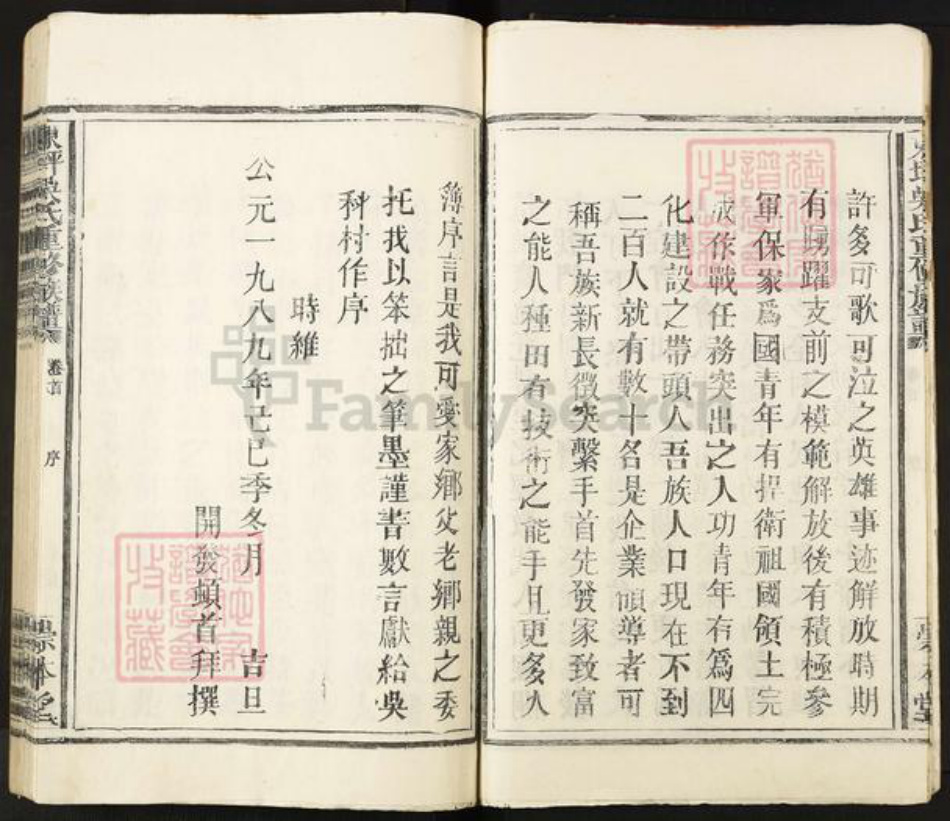 許多可歌可泣之英雄事迹解放時期
有踴躍支前之模範解放後有積極參
軍保家爲國青年有捍衛祖國領土完
成作戰任務突出之人功青年有爲四
化建設之帶頭人吾族人口現在不到
二百人就有數十名是企業領導者可
稱吾族新長徵突繫手首先發家致富
之能人種田有技術之能手且更多人
簿序言是我可愛家鄉父老鄉親之委
托我以笨拙之筆墨謹書數言獻給吳
科村作序
時維
公元一九八九年己巳季冬月 吉旦
開發頓首拜撰
吳氏重修族譜
卷首
序
堂
FamilySearch